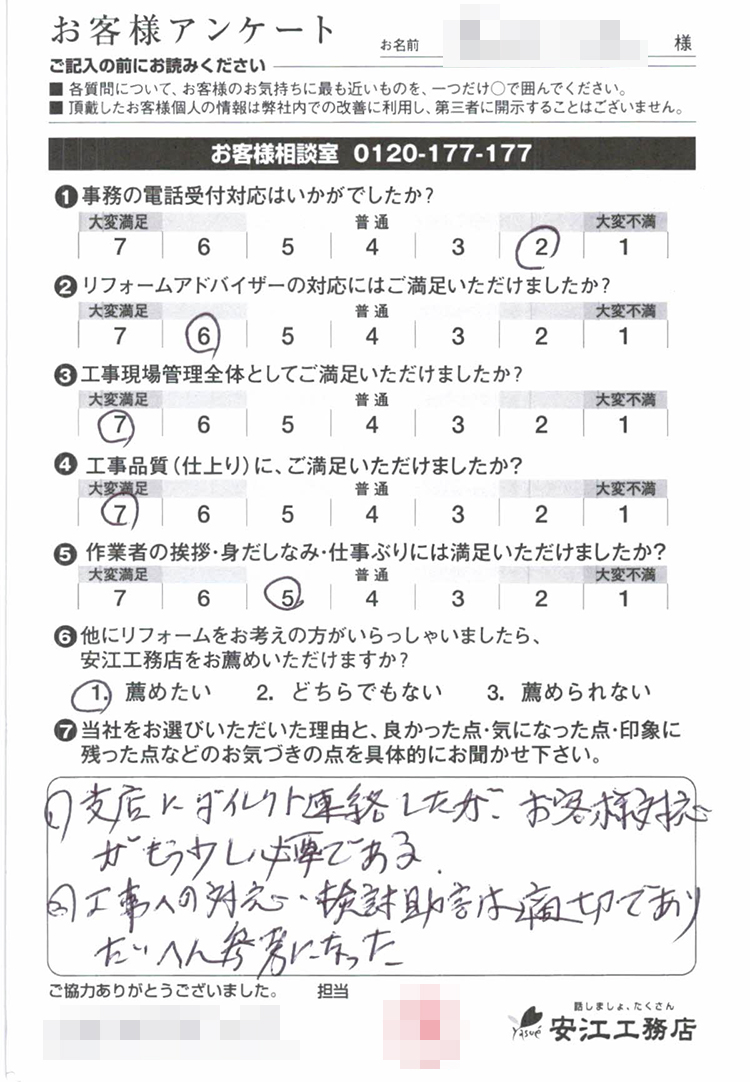 お客様アンケート
お名前 様
ご記入の前にお読みください
■ 各質問について、お客様のお気持ちに最も近いものを、一つだけ○で囲んでください。
■ 頂戴したお客様個人の情報は弊社内での改善に利用し、第三者に開示することはございません。
お客様相談室 0120-177-177
❶事務の電話受付対応はいかがでしたか?
大変満足 普通 大変不満
7 6 5 4 3 2 1
❷リフォームアドバイザーの対応にはご満足いただけましたか?
大変満足 普通 大変不満
7 6 5 4 3 2 1
❸工事現場管理全体としてご満足いただけましたか?
大変満足 普通 大変不満
7 6 5 4 3 2 1
❹工事品質(仕上り)に、ご満足いただけましたか?
大変満足 普通 大変不満
7 6 5 4 3 2 1
❺作業者の挨拶・身だしなみ・仕事ぶりには満足いただけましたか?
大変満足 普通 大変不満
7 6 5 4 3 2 1
❻他にリフォームをお考えの方がいらっしゃいましたら、
安江工務店をお薦めいただけますか?
1. 薦めたい 2. どちらでもない 3. 薦められない
❼当社をお選びいただいた理由と、良かった点・気になった点・印象に
残った点などのお気づきの点を具体的にお聞かせ下さい。
1) 支店にダイレクト連絡したが、お客様対応
がもう少し必要である.
2) 工事への対応・検討助言は適切であり
たいへん参考になった
ご協力ありがとうございました。 担当
話しましょ、たくさん
Yasué 安江工務店